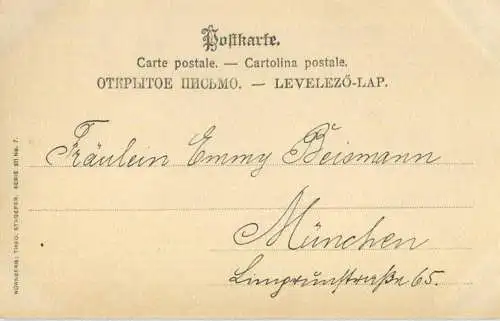 Postkarte.
Carte postale. — Cartolina postale.
ОТКРЫТОЕ ПИСЬМО. — LEVELEZŐ-LAP.
Fräulein Emmy Beismann
München
Limprunstraße 65.
NÜRNBERG: THEO. STROEFER, SERIE 211 No. 7.